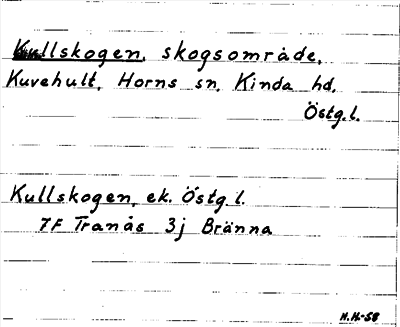 Kullskogen, skogsområde,
Kuvehult, Horns sn, Kinda hd,
Östg.l.
Kullskogen, ek. Östg.l.
7F Tranås 3j Bränna
H.H.-58